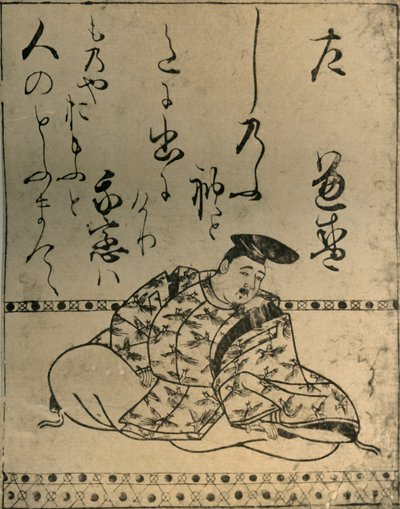 左 兼盛
しのふ
れと
色に出に
けり
我恋は
ものやおもふと
人のとふまて